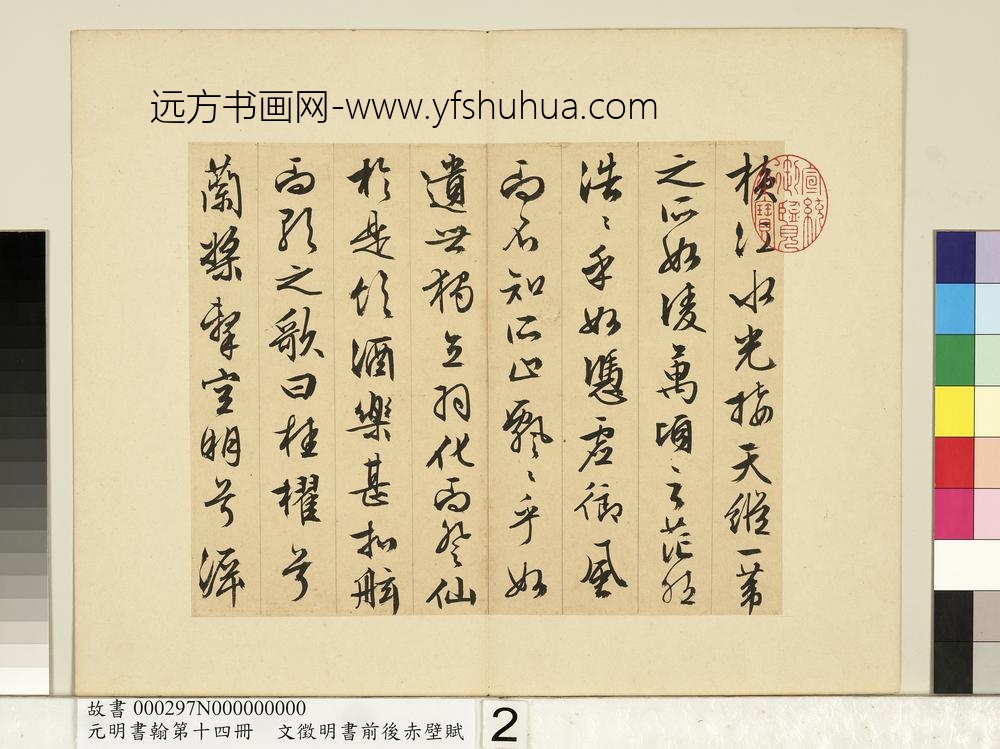 远方书画网-www.yfshuhua.com
橫江水光接天縱一葦
之所如陵萬頃之茫然
浩〻乎如憑虛御風
而不知所止飄〻乎如
遺世獨立羽化而登仙
於是飲酒樂甚扣舷
而歌之歌曰桂櫂兮
蘭槳擊空明兮泝
宣統
御覽
之寶
故書 000297N000000000
元明書翰第十四冊 文徵明書前後赤壁賦
2